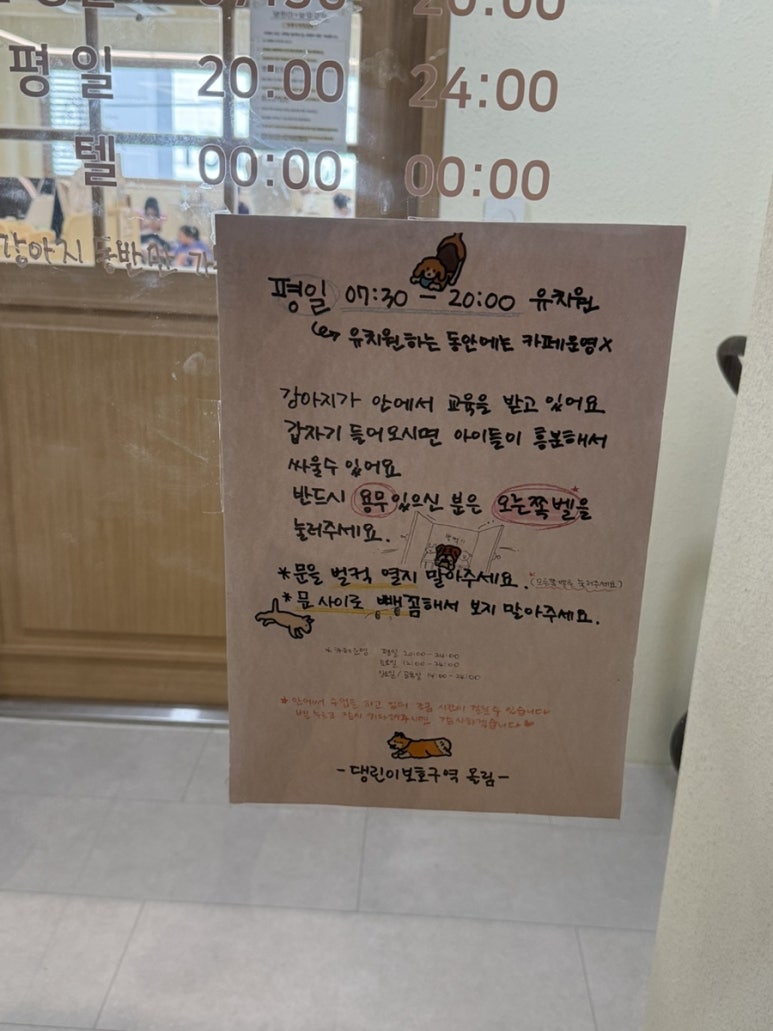 07:30 20:00
평일 20:00 24:00
텔 00:00 00:00
강아지 동반만
평일 07:30 - 20:00 유치원
↪ 유치원하는 동안에는 카페운영X
강아지가 안에서 교육을 받고 있어요
갑자기 들어오시면 아이들이 흥분해서
싸울수 있어요
반드시 용무있으신 분은 오른쪽벨을
눌러주세요.
*문을 벌컥 열지 말아주세요. (오른쪽 벨을 눌러주세요)
*문 사이로 빼꼼해서 보지 말아주세요.
*카페운영 평일 20:00-24:00
토요일 12:00-24:00
일요일/공휴일 14:00-24:00
*안에서 수업을 하고 있어 조금 시간이 걸릴수 있습니다
벨 누르고 잠시 기다려주시면 감사하겠습니다♥
-댕린이보호구역 올림-